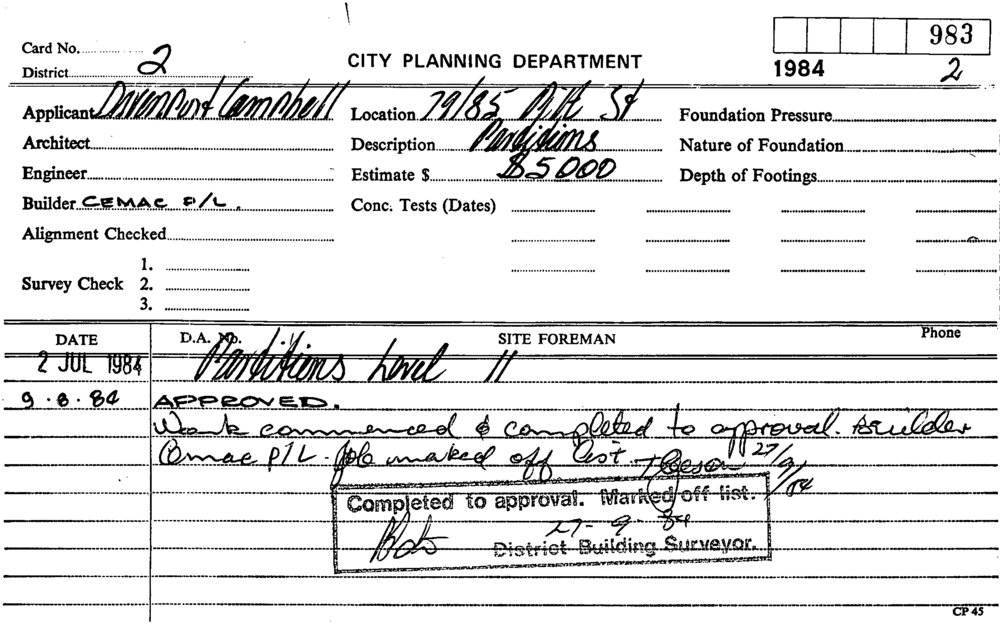 983
Card No.
CITY PLANNING DEPARTMENT
District 2
1984 2
Applicant Davenport Campbell
Location 79/85 Pitt St
Foundation Pressure
Architect
Description Partitions
Nature of Foundation
Engineer
Estimate $ $5000
Depth of Footings
Builder CEMAC P/L.
Conc. Tests (Dates)
Alignment Checked
Survey Check
1.
2.
3.
DATE
D.A. No.
SITE FOREMAN
Phone
2 JUL 1984
Partitions Level 11
9.8.84
APPROVED.
Work commenced & completed to approval. Builder
Cemac P/L. Job marked off list. 27/9/84
Completed to approval. Marked off list.
27-9-84
District Building Surveyor.
CP 45